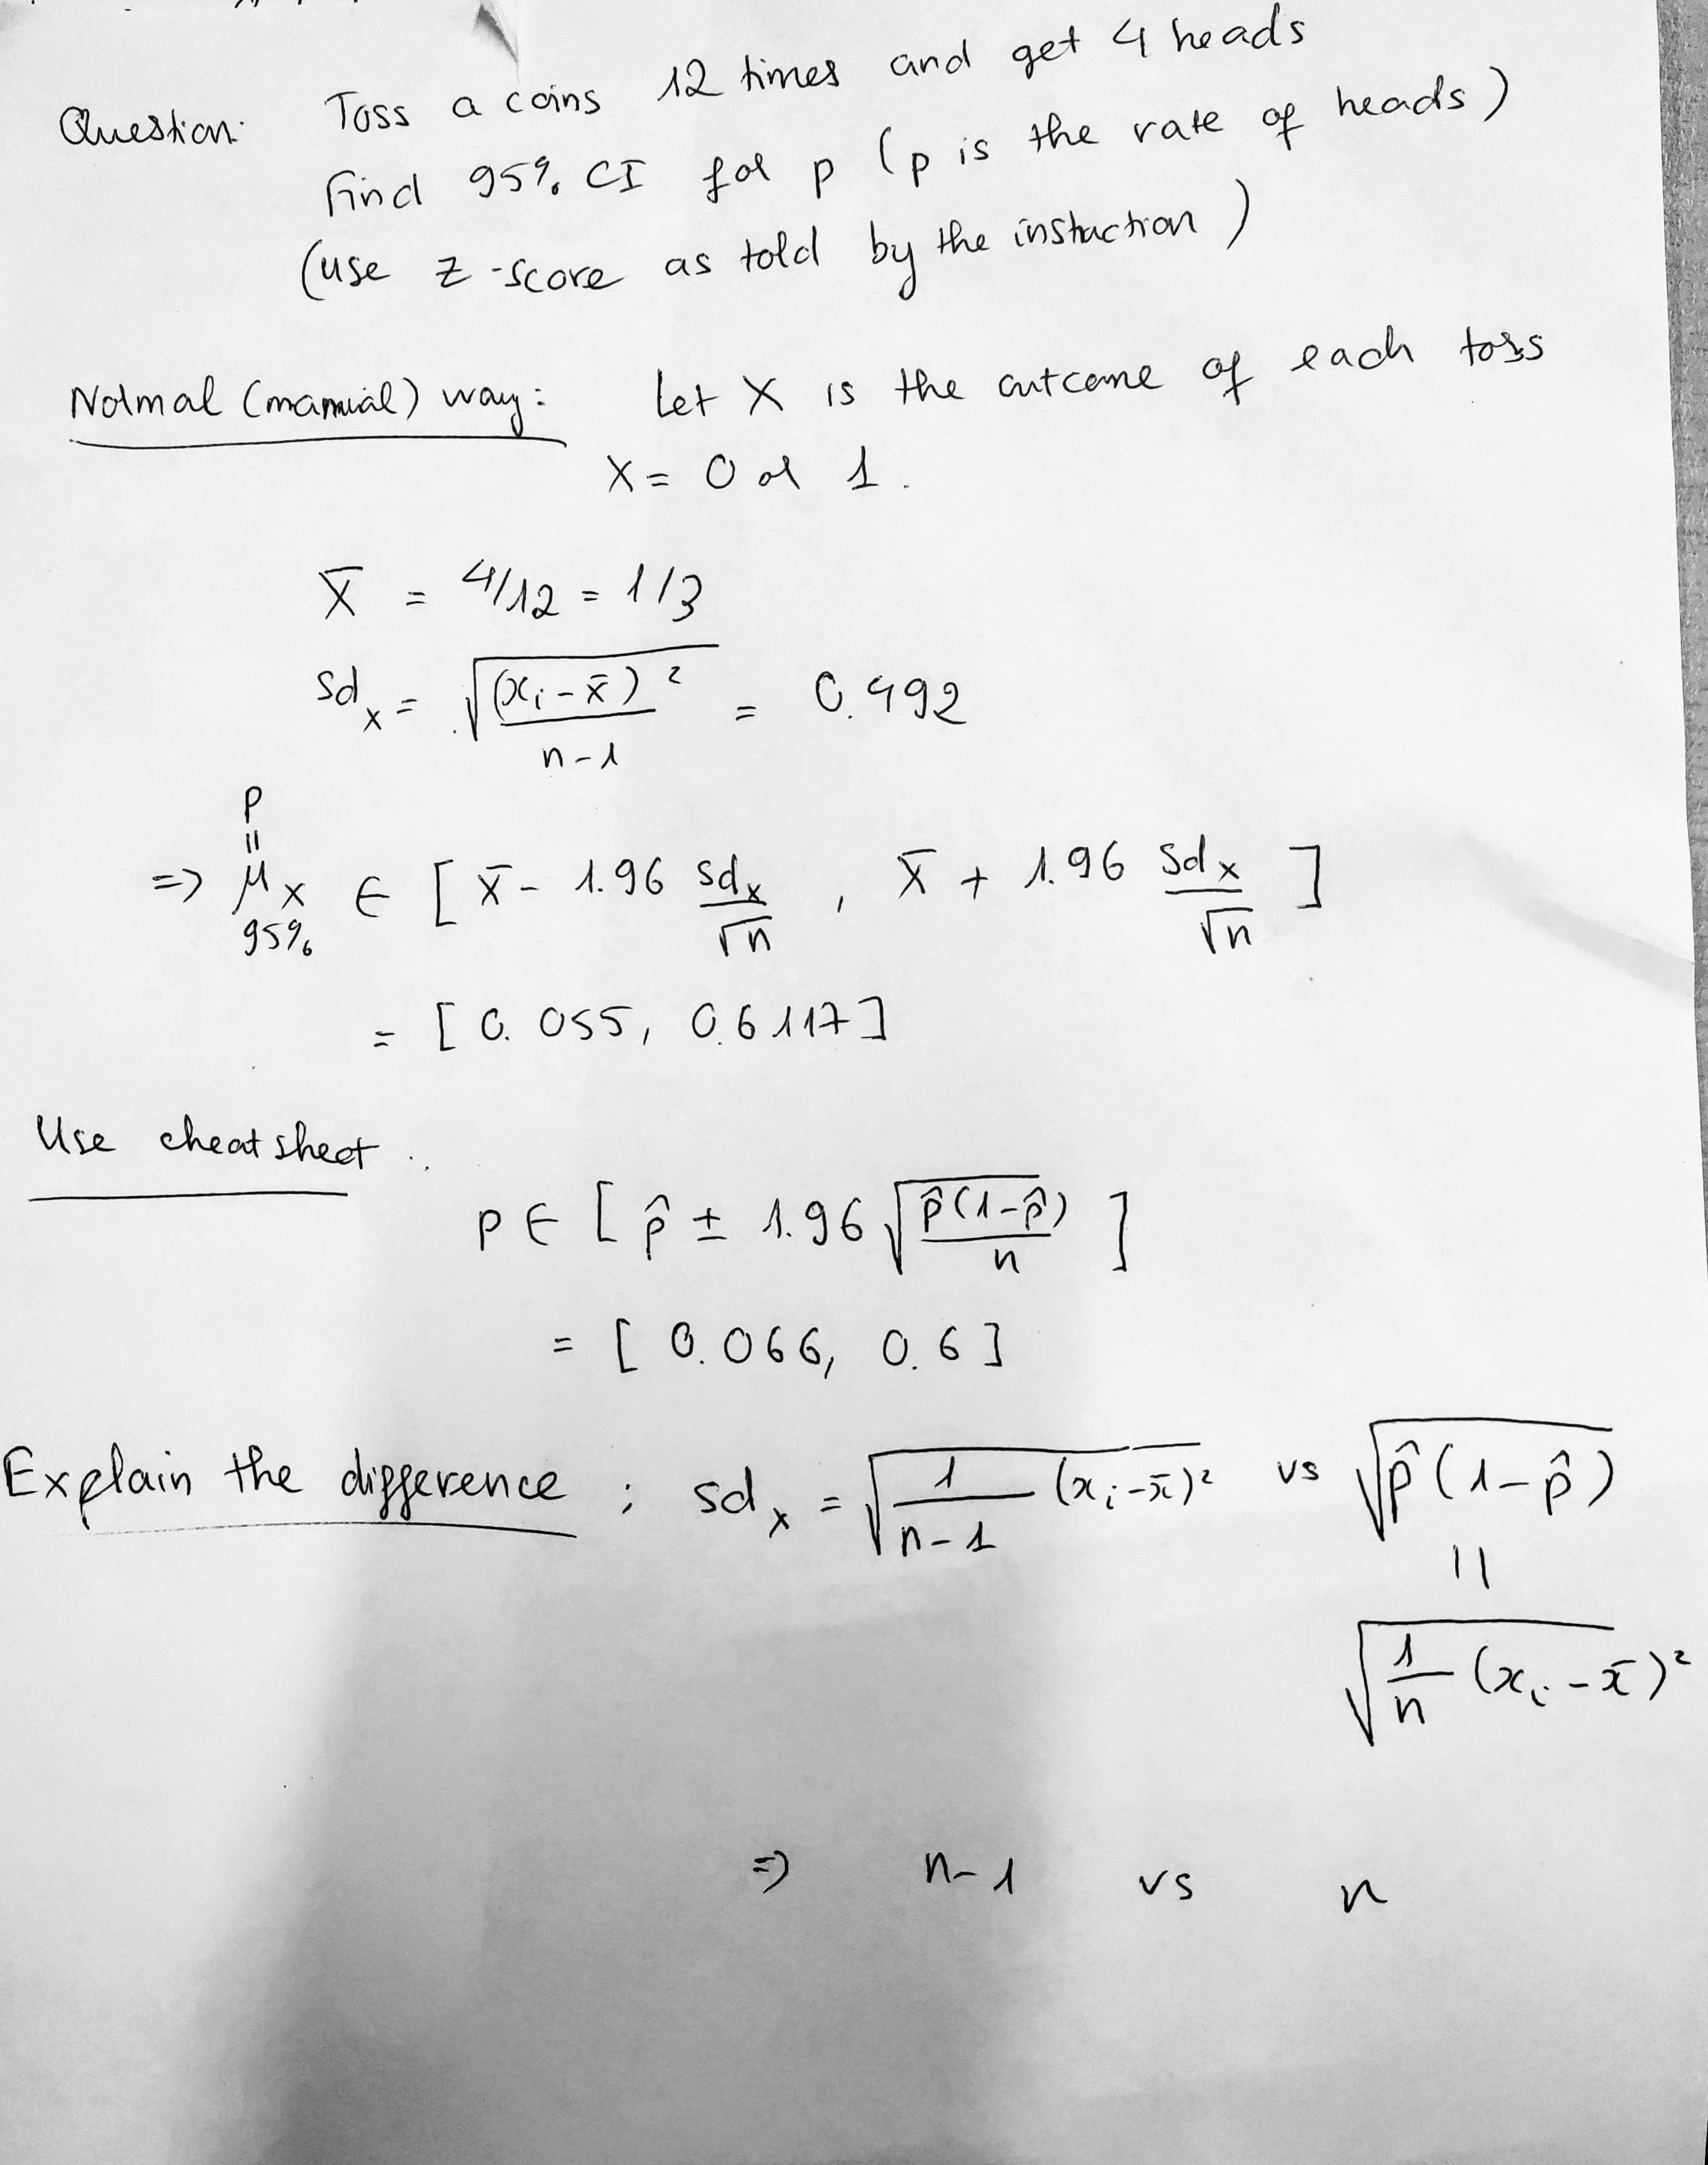 Question: Toss a coins 12 times and get 4 heads
Find 95% CI for p (p is the rate of heads)
(use z-score as told by the instuction)
Normal (manual) way: Let X is the outcome of each toss
X = 0 or 1.
X̄ = 4/12 = 1/3
sd_x = √((x_i - x̄)² / (n-1)) = 0.492
p
=
=> μ_x ∈ [x̄ - 1.96 sd_x/√n , x̄ + 1.96 sd_x/√n]
95%
= [0.055, 0.6117]
Use cheat sheet :
p ∈ [p̂ ± 1.96 √(p̂(1-p̂)/n)]
= [0.066, 0.6]
Explain the difference ; sd_x = √(1/(n-1) (x_i - x̄)²) vs √(p̂(1-p̂))
=
√(1/n (x_i - x̄)²)
=> n-1 vs n